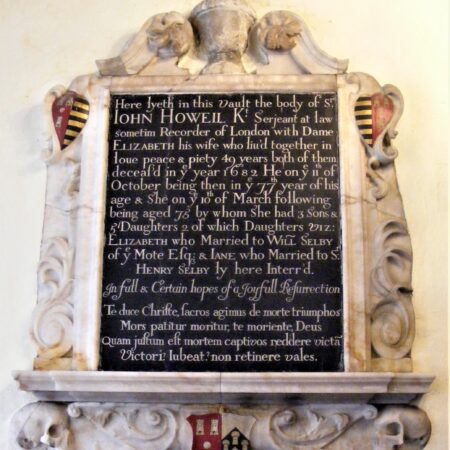 Here lyeth in this Vault the body of Sr.
IOHN HOWELL Kt. Serjeant at law
sometim Recorder of London with Dame
ELIZABETH his wife who liu'd together in
loue peace & piety 49 years both of them
deceas'd in ye year 1682 He on ye 11 of
October being then in ye 77th year of his
age & She on ye 10th of March following
being aged 75 by whom She had 3 Sons &
5 Daughters 2 of which Daughters VIZ:
ELIZABETH who Married to WILL SELBY
of ye Mote Esq; & IANE who Married to Sr.
HENRY SELBY ly here Interr'd.
In full & Certain hopes of a Joyfull Resurrection
Te duce Christe, sacros agimus de morte triumphos
Mors patitur moritur, te moriente, Deus
Quam justum est mortem captivos reddere victa
Victori Iubeat: non retinere vales.